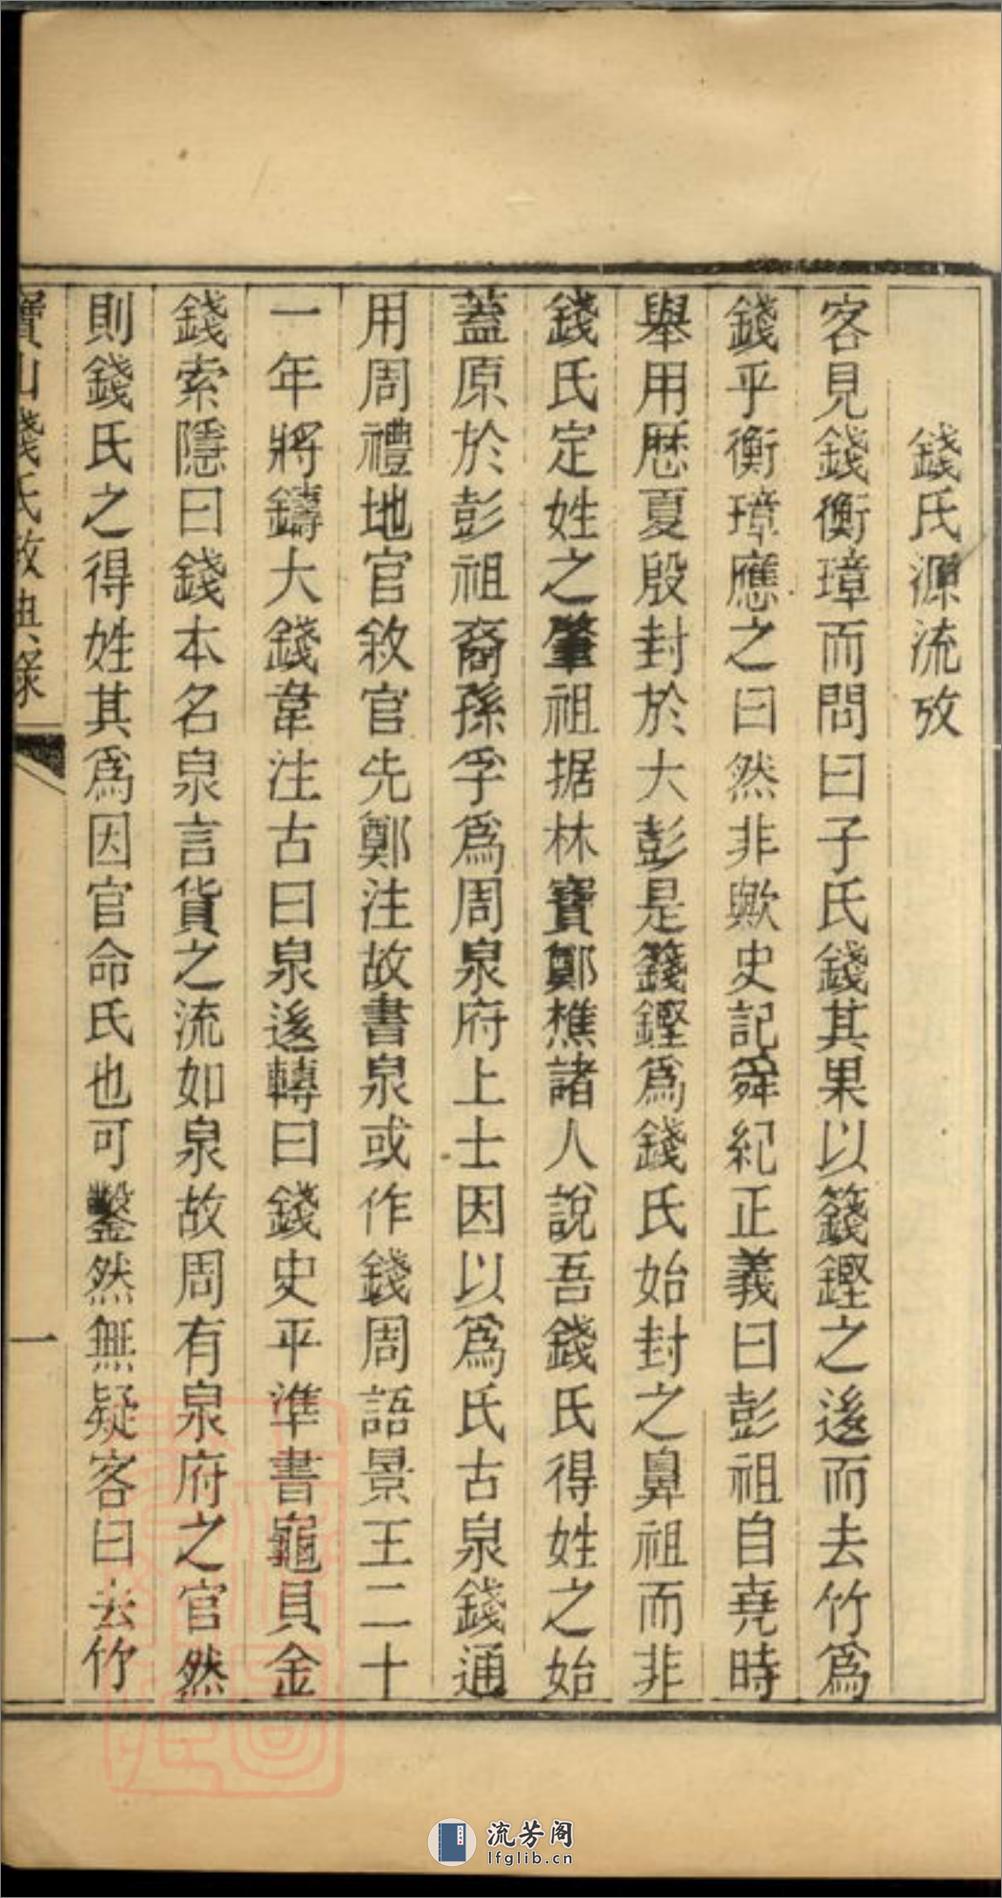 錢氏源流攷
客見錢衡璋而問曰子氏錢其果以籛鏗之後而去竹爲
錢乎衡璋應之曰然非歟史記舜紀正義曰彭祖自堯時
舉用歷夏殷封於大彭是籛鏗爲錢氏始封之鼻祖而非
錢氏定姓之肇祖据林寶鄭樵諸人說吾錢氏得姓之始
蓋原於彭祖裔孫孚爲周泉府上士因以爲氏古泉錢通
用周禮地官敘官先鄭注故書泉或作錢周語景王二十
一年將鑄大錢韋注古曰泉後轉曰錢史平準書龜貝金
錢索隱曰錢本名泉言貨之流如泉故周有泉府之官然
則錢氏之得姓其爲因官命氏也可鑿然無疑客曰去竹
寶山錢氏故典錄
一
流芳阁
lfglib.cn